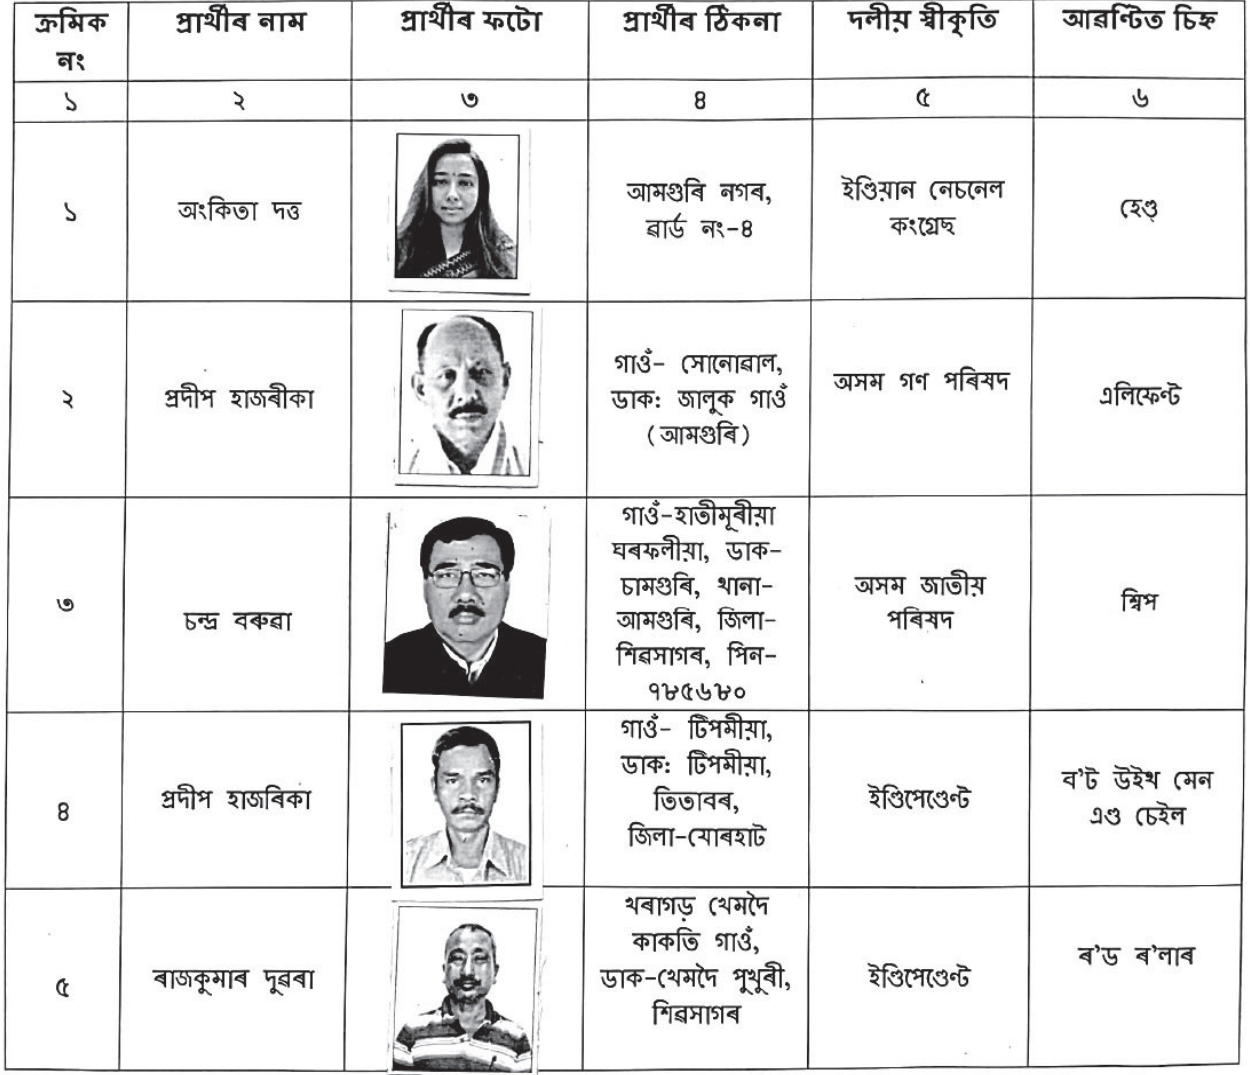 ক্ৰমিক নং
প্ৰাৰ্থীৰ নাম
প্ৰাৰ্থীৰ ফটো
প্ৰাৰ্থীৰ ঠিকনা
দলীয় স্বীকৃতি
আৱণ্টিত চিহ্ন
১
২
৩
৪
৫
৬
১
অংকিতা দত্ত
আমগুৰি নগৰ,
ৱাৰ্ড নং-৪
ইণ্ডিয়ান নেচনেল
কংগ্ৰেছ
হেণ্ড
২
প্ৰদীপ হাজৰীকা
গাওঁ- সোনোৱাল,
ডাক: জালুক গাওঁ
(আমগুৰি)
অসম গণ পৰিষদ
এলিফেন্ট
৩
চন্দ্ৰ বৰুৱা
গাওঁ-হাতীমূৰীয়া
ঘৰফলীয়া, ডাক-
চামগুৰি, থানা-
আমগুৰি, জিলা-
শিৱসাগৰ, পিন-
৭৮৫৬৮০
অসম জাতীয়
পৰিষদ
শ্বিপ
৪
প্ৰদীপ হাজৰিকা
গাওঁ- টিপমীয়া,
ডাক: টিপমীয়া,
তিতাবৰ,
জিলা-যোৰহাট
ইণ্ডিপেণ্ডেন্ট
ব'ট উইথ মেন
এণ্ড চেইল
৫
ৰাজকুমাৰ দুৱৰা
খৰাগড় থেমদৈ
কাকতি গাওঁ,
ডাক-থেমদৈ পুখুৰী,
শিৱসাগৰ
ইণ্ডিপেণ্ডেন্ট
ৰ'ড ৰ'লাৰ